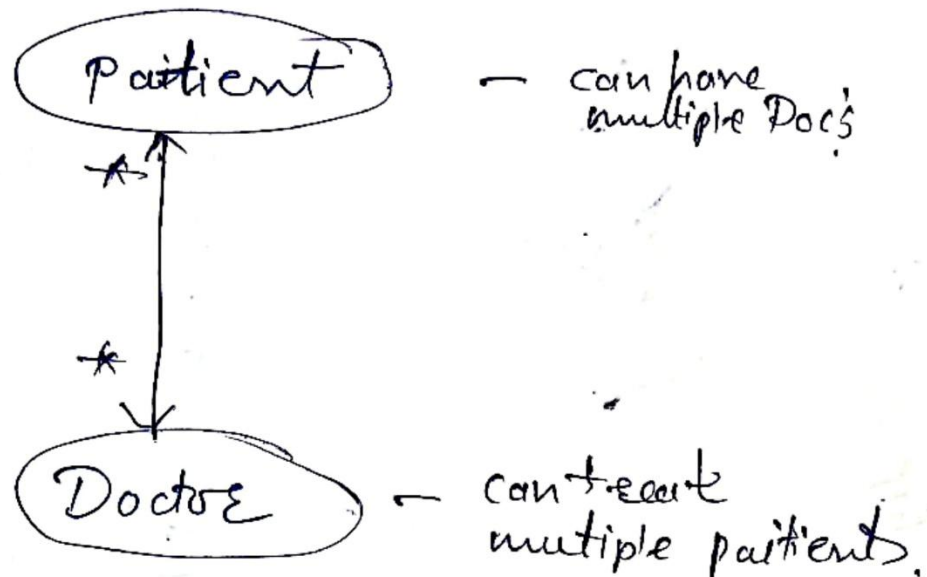 Paitient
- can have
multiple Doc's
*
*
Doctor
- can treat
mutiple paitients.